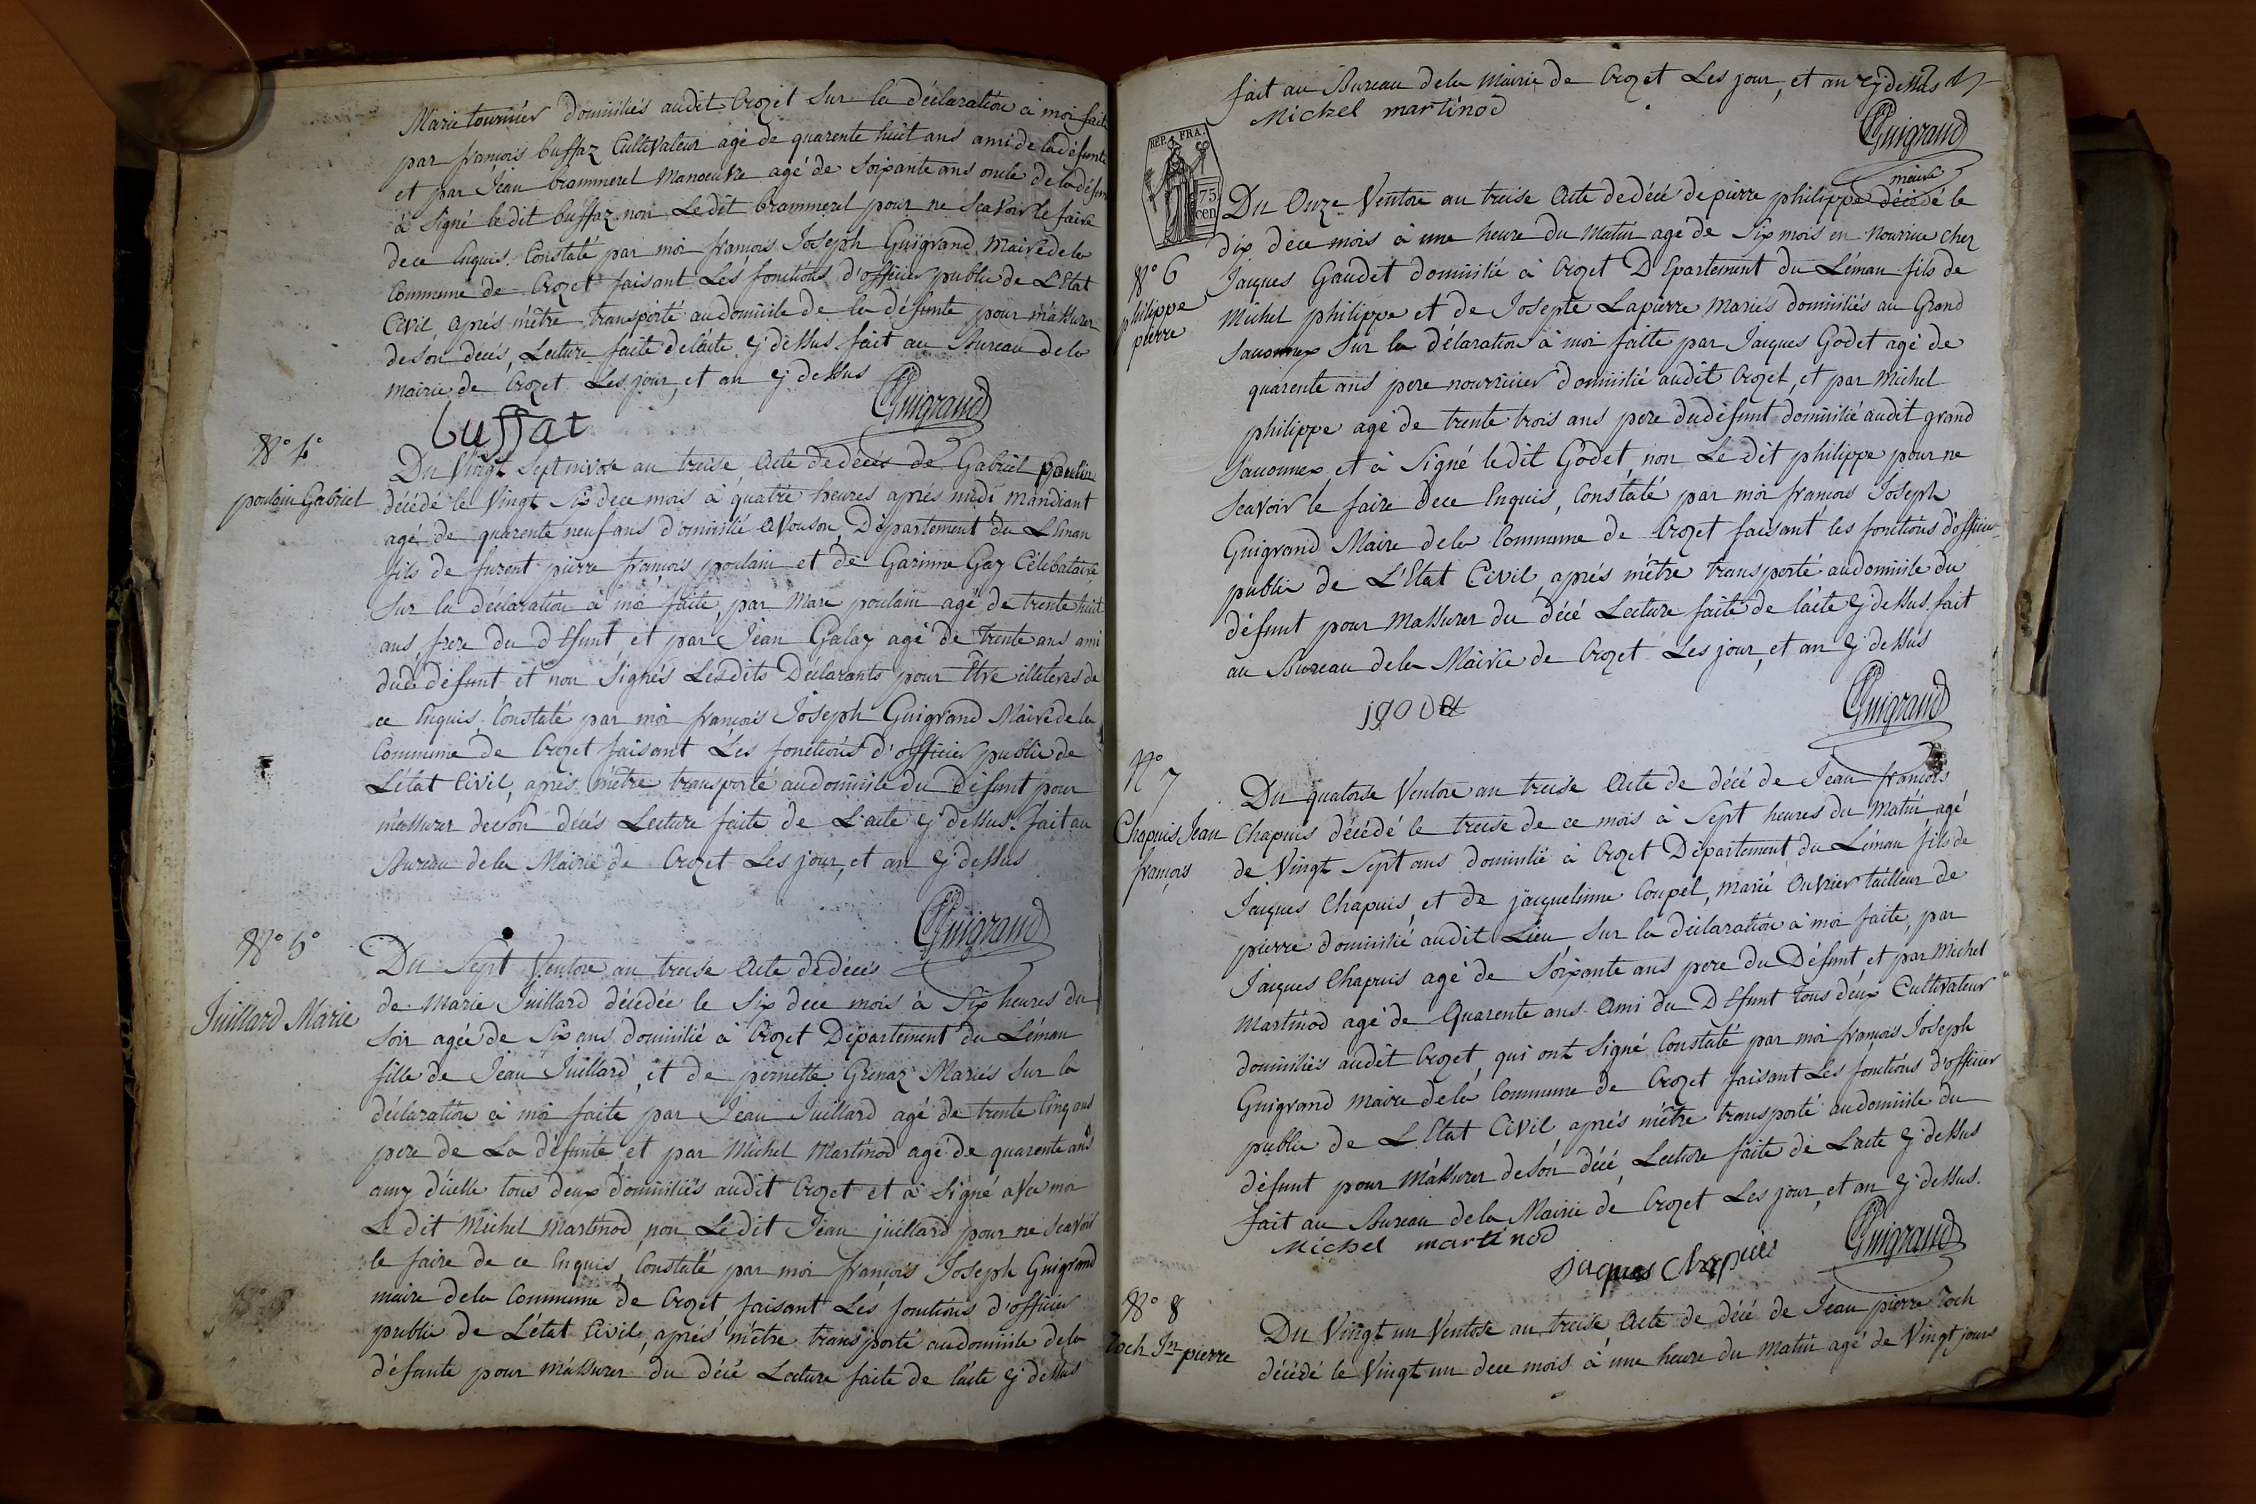 Marie tournier domiciliés audit Crozet sur la déclaration à moi faite
par françois buffaz Cultivateur agé de quarente huit ans ami de la défunte
et par Jean brammerel Manoeuvre agé de soixante ans oncle de la défunte
à signé le dit buffaz non le dit brammerel pour ne scavoir le faire
de ce Enquis. Constaté par moi françois Joseph Guigrand Maire de la
Commune de Crozet faisant les fonctions d'officier public de L'Etat
Civil, aprés mêtre transporté au domicile de la défunte pour m'assurer
de son décés, Lecture faite de lácte cy dessus fait au Bureau de la
mairie de Crozet Les jour, et an cy dessus
buffat
Guigrand
N° 4°
poulain Gabriel
Du Vingt sept nivose an treise Acte de décès de Gabriel poulin
décédé le Vingt Six de ce mois à quatre heures aprés midi mandiant
agé de quarente neuf ans domicilié a Vouson, Département du Léman
fils de furent pierre françois poulain et de Garinne Gay Célibataire
sur la déclaration à moi faite par Marc poulain agé de trente huit
ans, frere du défunt et par Jean Galay agé de trente ans ami
dud défunt et non signés Lesdits Déclarants pour Être illeterés de
ce Enquis. Constaté par moi françois Joseph Guigrand Maire de la
Commune de Crozet faisant Les fonctions d'officier public de
L'état Civil, aprés mêtre transporté au domicile du défunt pour
m'assurer de son décés Lecture faite de L'acte cy dessus. fait au
Bureau de la Mairie de Crozet Les jour, et an cy dessus
Guigrand
N° 5°
Juillard Marie
Du Sept Ventose an treise Acte de décès
de Marie Juillard décédée le Six de ce mois à Six heures du
Soir agée de Six ans domicilié à Crozet Département du Léman
fille de Jean Juillard, et de pernette Grenaz Mariés sur la
déclaration à moi faite par Jean Juillard agé de trente Cinq ans
pere de La défunte et par Michel Martinod agé de quarente ans
amy dicelle tous deux domiciliés audit Crozet et à signé avec moi
Le dit Michel Martinod non Le dit Jean juillard pour ne scavoir
le faire de ce Enquis, Constaté par moi françois Joseph Guigrand
maire de la Commune de Crozet faisant Les fonctions d'officier
public de L'état Civil, aprés mêtre transporté au domicile de la
défunte pour m'assurer du décé Lecture faite de lácte cy dessus
fait au Bureau de la Mairie de Crozet Les jour, et an cy dessus
Michel martinod
Guigrand
maire
REP. FRA.
75
cen
N° 6
philippe
pierre
Du Onze Ventose an treise Acte de décé de pierre philippe décédé le
dix de ce mois à une heure du Matin agé de Six mois en Nourrice chez
Jacques Gaudet domicilié à Crozet Département du Léman fils de
Michel philippe et de Josepte Lapierre Mariés domiciliés au Grand
Saconnex sur la délaration à moi faitte par Jacques Godet agé de
quarente ans pere nourricier domicilié audit Crozet, et par Michel
philippe agé de trente trois ans pere du défunt domicilié audit grand
Saconnex et à Signé ledit Godet, non Le dit philippe pour ne
scavoir le faire de ce Enquis, Constaté par moi francois Joseph
Guigrand Maire de la Commune de Crozet faisant les fonctions d'officier
public de L'Etat Civil, aprés mêtre transporté au domicile du
défunt pour m'assurer du décé Lecture faite de lácte cy dessus. fait
au Bureau de la Mairie de Crozet Les jour, et an cy dessus
jgodet
Guigrand
N° 7
Chapuis Jean
françois
Du quatorse Ventose an treise Acte de décé de Jean françois
Chapuis décédé le treise de ce mois à Sept heures du Matin agé
de Vingt Sept ans domicilié à Crozet Département du Léman fils de
Jacques Chapuis, et de jacquelinne Coupel, Marié Ouvrier tailleur de
pierre domicilié audit Lieu sur la déclaration à moi faite, par
Jacques Chapuis agé de Soixante ans pere du Défunt, et par Michel
Martinod agé de Quarente ans Ami du Défunt tous deux Cultivateur
domiciliés audit Crozet, qui ont Signé Constaté par moi françois Joseph
Guigrand maire de la Commune de Crozet faisant Les fonctions d'officier
public de L'Etat Civil aprés mêtre transporté au domicile du
défunt pour m'assurer de son décé, Lecture faite de L'acte cy dessus
fait au Bureau de la Mairie de Crozet Les jour, et an cy dessus.
Michel martinod
jaques chapuis
Guigrand
N° 8
Zoch Jn pierre
Du Vingt un Ventose an treise Acte de décé de Jean pierre Zoch
décédé le Vingt un de ce mois à une heure du Matin agé de Vingt jours